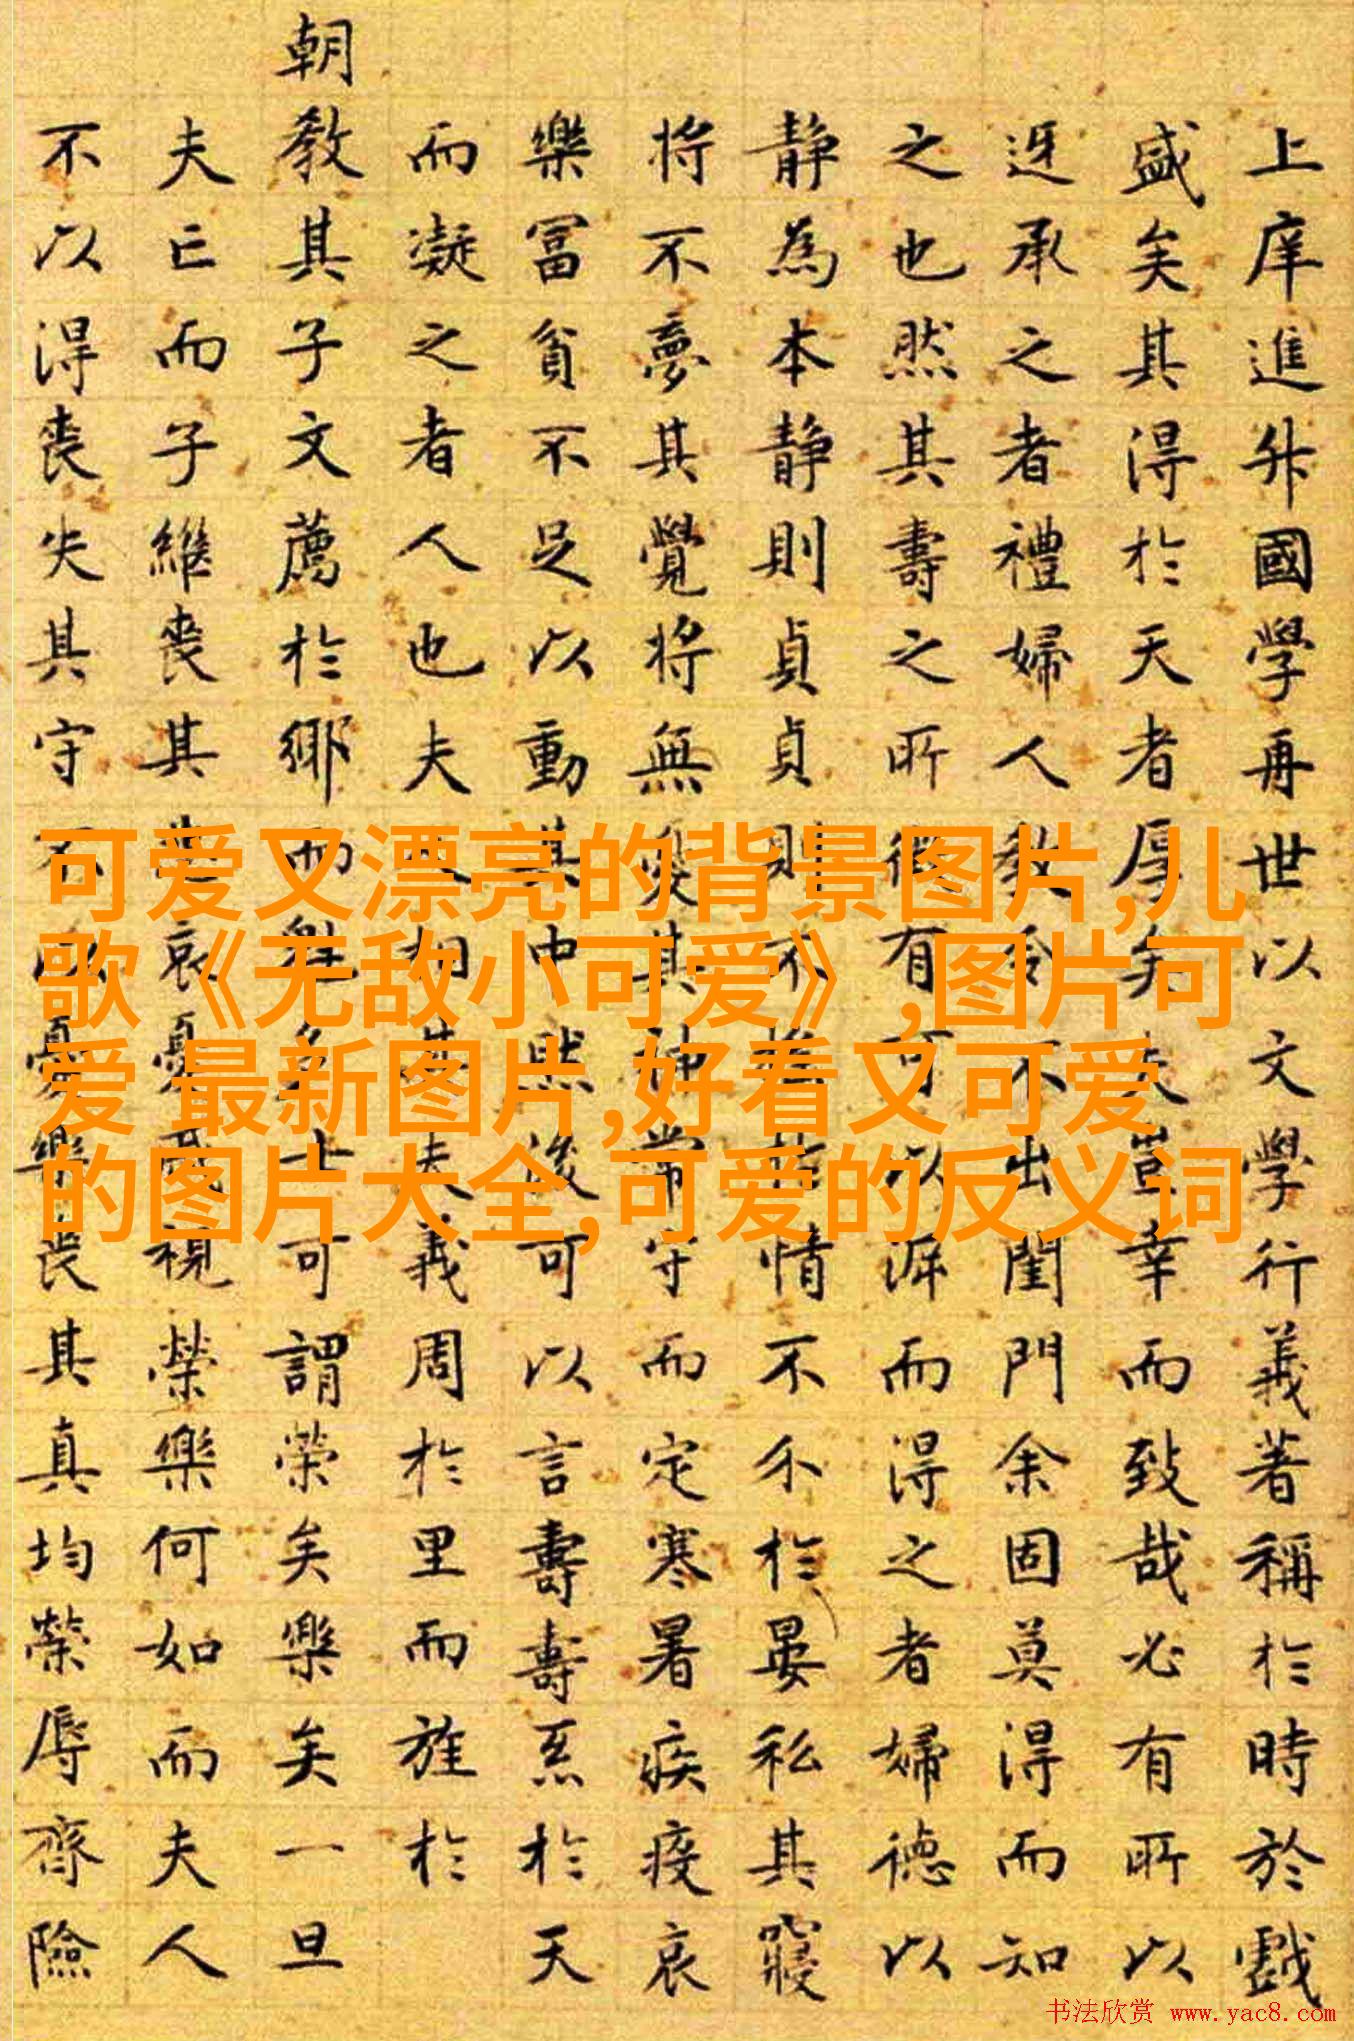 上庠進升國學再世以文學行義著稱於時於戲
盛矣其得於天者厚矣夫豈幸而致哉必有所以
迓承之者禮婦人教令不出閨門余固莫得而知
之也然其壽之所徵有可以涯而得之者婦德以
静為本静則貞貞則不於情不分於晏私其寢
將不夢其覺將無憂其神常守而定寒暑疾疫哀
樂冨貧不足以動其中然後可以言壽壽系於天
而凝之者人也夫人相其夫義周於里而旌於
朝教其子文薦於鄉而魁多士可謂榮矣樂矣一旦
夫亡而子繼喪其哀憂戚視榮樂何如而夫人
不以得喪失其守不以憂樂喪其真均榮辱齊險
可爱又漂亮的背景图片,儿
歌《无敌小可爱》,图片可
爱 最新图片,好看又可爱
的图片大全,可爱的反义词
书法欣赏 www.yac8.com